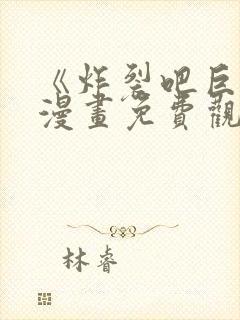 《炸裂吧巨
漫畫免費觀
林睿